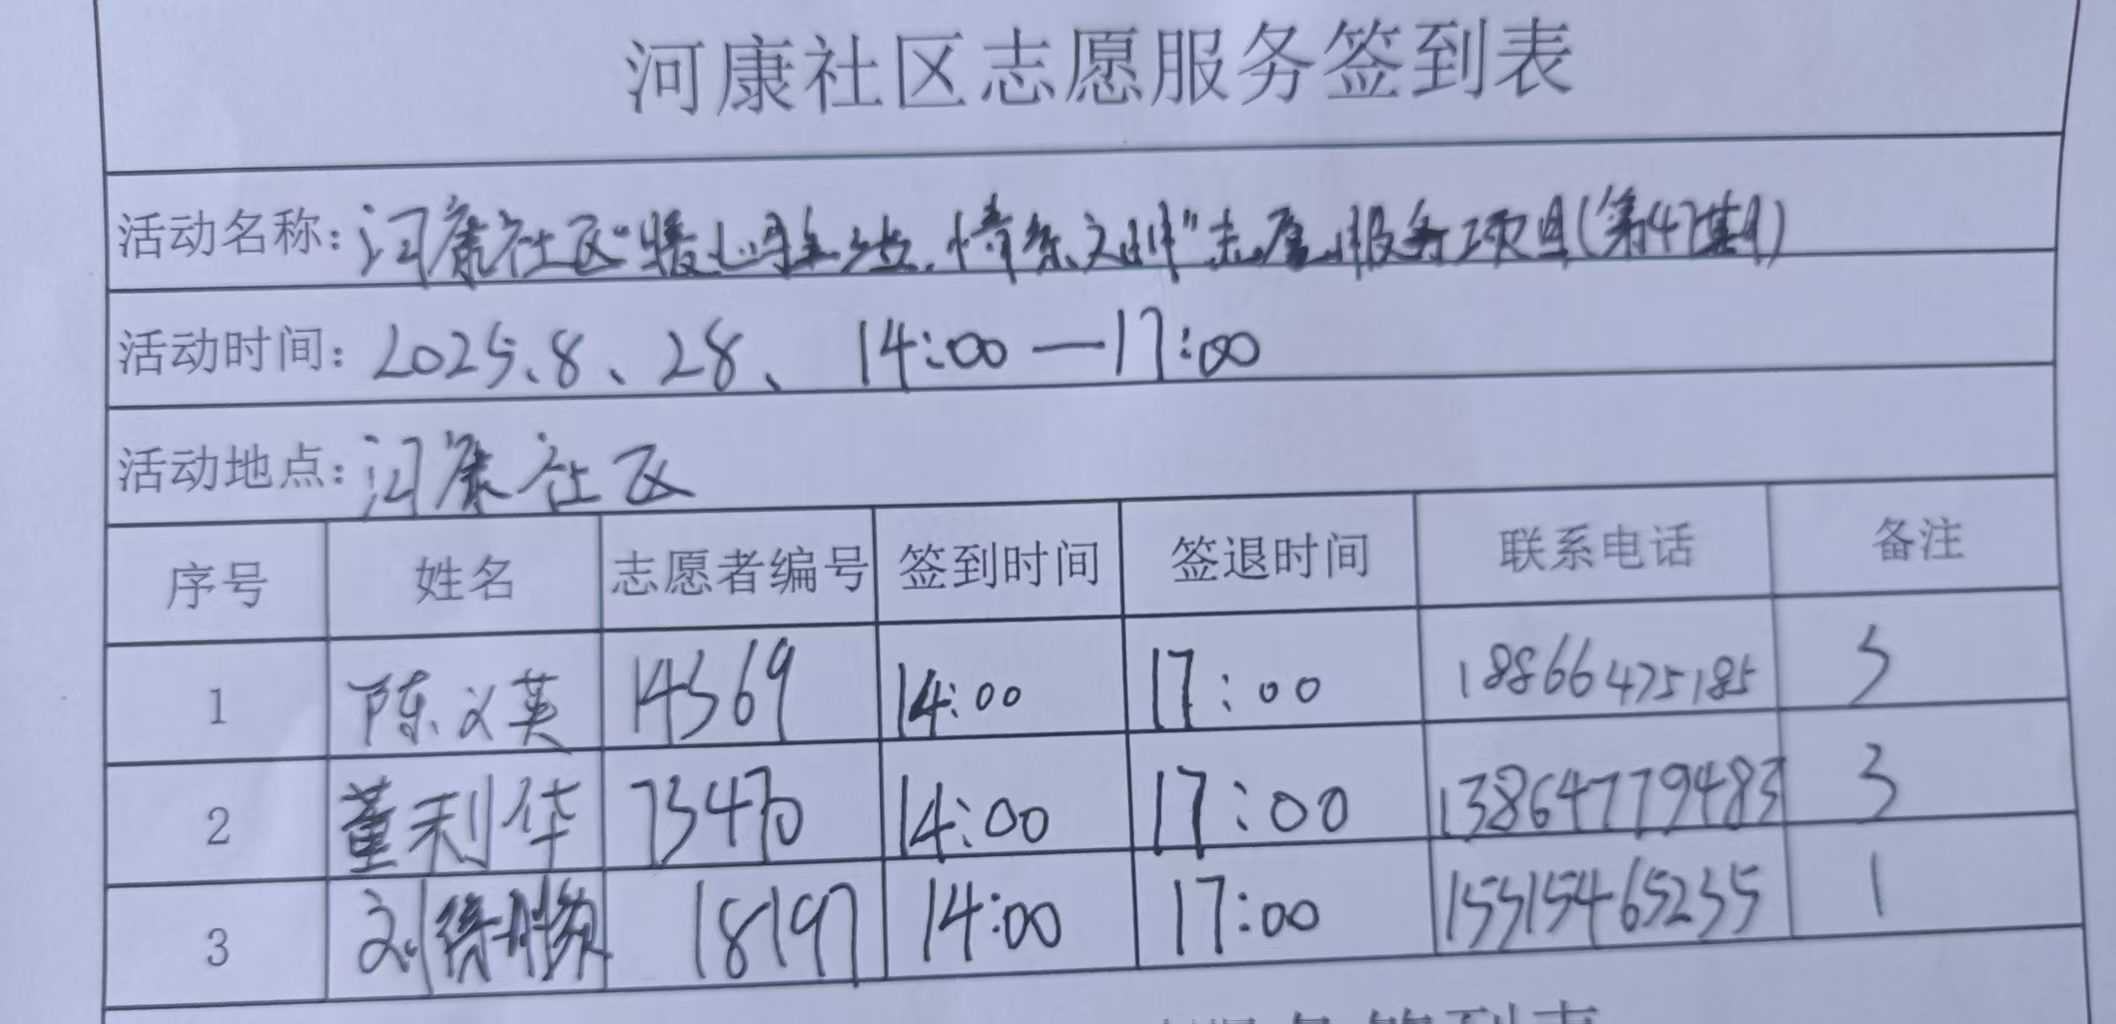 河康社区志愿服务签到表
活动名称:河康社区"暖心驿站,情系"志愿服务项目(第47期)
活动时间:2025、8、28、 14:00—17:00
活动地点:河康社区
序号 姓名 志愿者编号 签到时间 签退时间 联系电话 备注
1 陈义英 14369 14:00 17:00 18866475185 3
2 董利华 73470 14:00 17:00 13864779483 3
3 刘 18197 14:00 17:00 15315465235 1